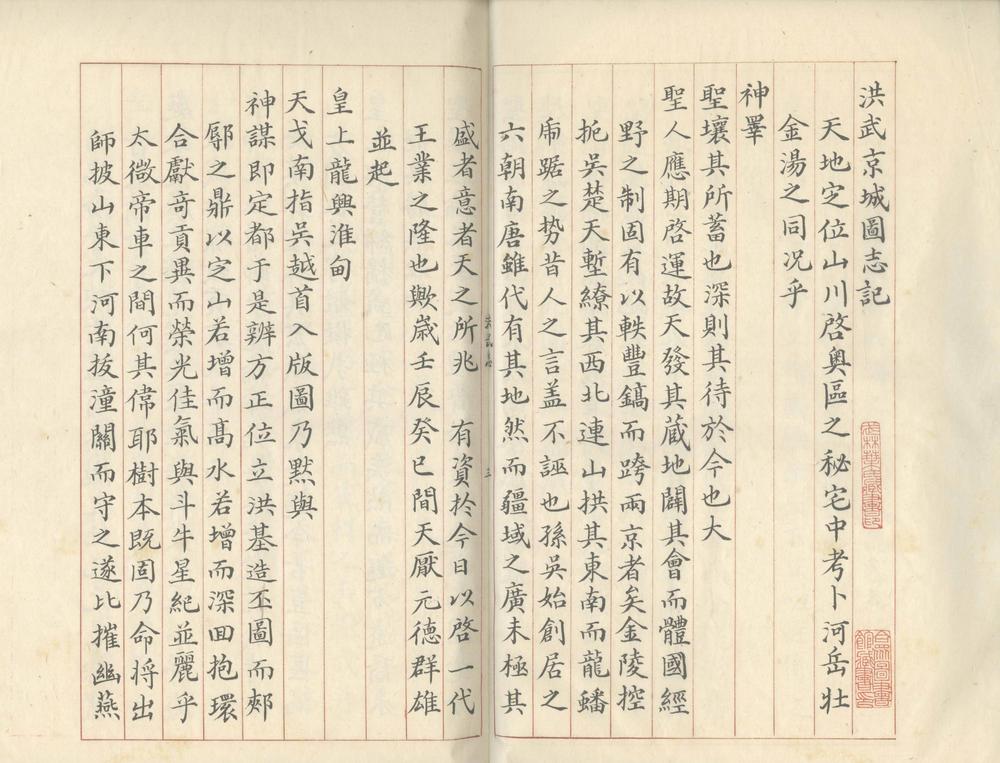 洪武京城圖志記
天地定位山川啓奧區之秘宅中考卜河岳壯
金湯之同况乎
神睪
聖壤其所蓄也深則其待於今也大
聖人應期啓運故天發其藏地闢其會而體國經
野之制固有以軼豐鎬而跨兩京者矣金陵控
扼吳楚天塹繚其西北連山拱其東南而龍蟠
乕踞之势昔人之言盖不誣也孫吳始創居之
六朝南唐雖代有其地然而疆域之廣未極其
盛者意者天之所兆 有資於今日以啓一代
王業之隆也歟歲壬辰癸巳間天厭元德群雄
並起
皇上龍興淮甸
天戈南指吳越首入版圖乃默與
神謀即定都于是辨方正位立洪基造丕圖而郟
鄏之鼎以定山若增而髙水若增而深回抱環
合獻奇貢異而榮光佳氣與斗牛星紀並麗乎
太微帝車之間何其偉耶樹本既固乃命將出
師披山東下河南拔潼關而守之遂比摧幽燕